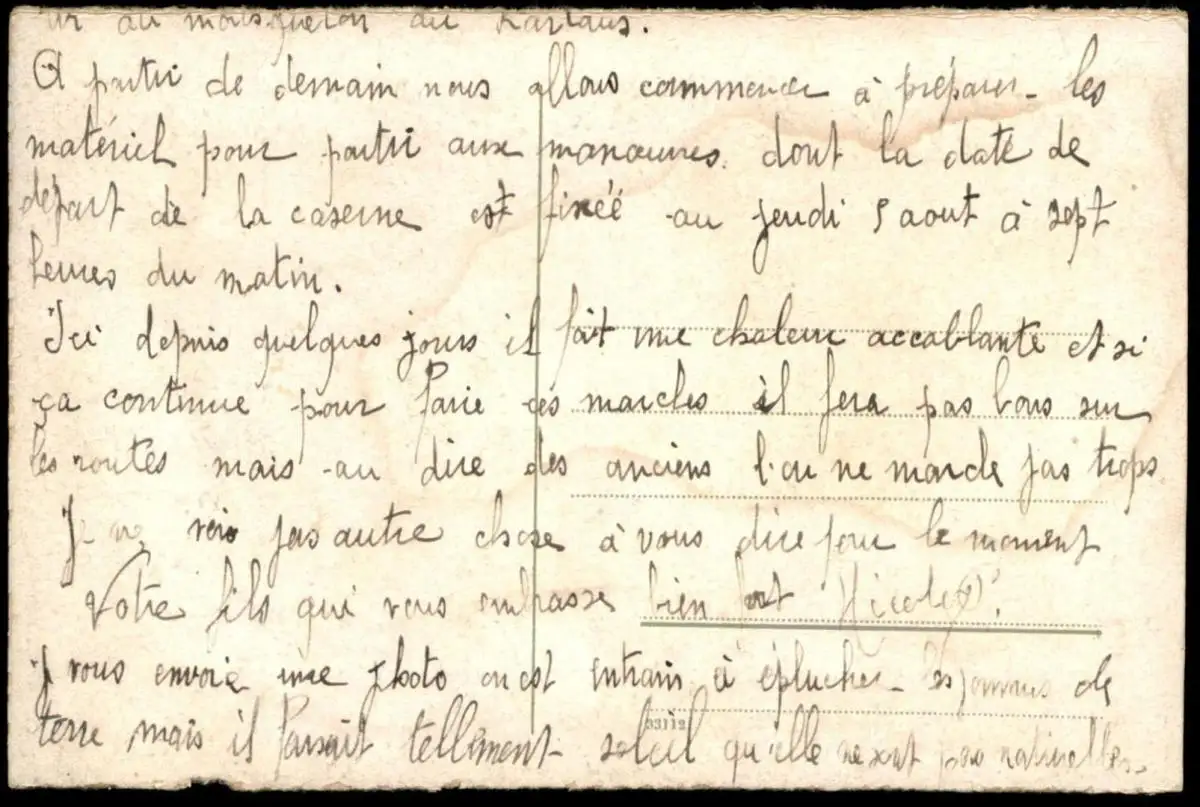 au mousqueton au
A partir de demain nous allons commencer à préparer les
matériel pour partir aux manœuvres dont la date de
départ de la caserne est fixéé au jeudi 5 aout à sept
heures du matin.
Ici depuis quelques jours il fait une chaleur accablante et si
ça continue pour faire ces marches il fera pas bons sur
les routes mais au dire des anciens l'on ne marche pas trops
Je ne vois pas autre chose à vous dire pour le moment
Votre fils qui vous embrasse bien fort
J vous envoie une photo on est entrain à éplucher les pommes de
terre mais il faisait tellement soleil qu'elle ne sont pas naturelles.
33112